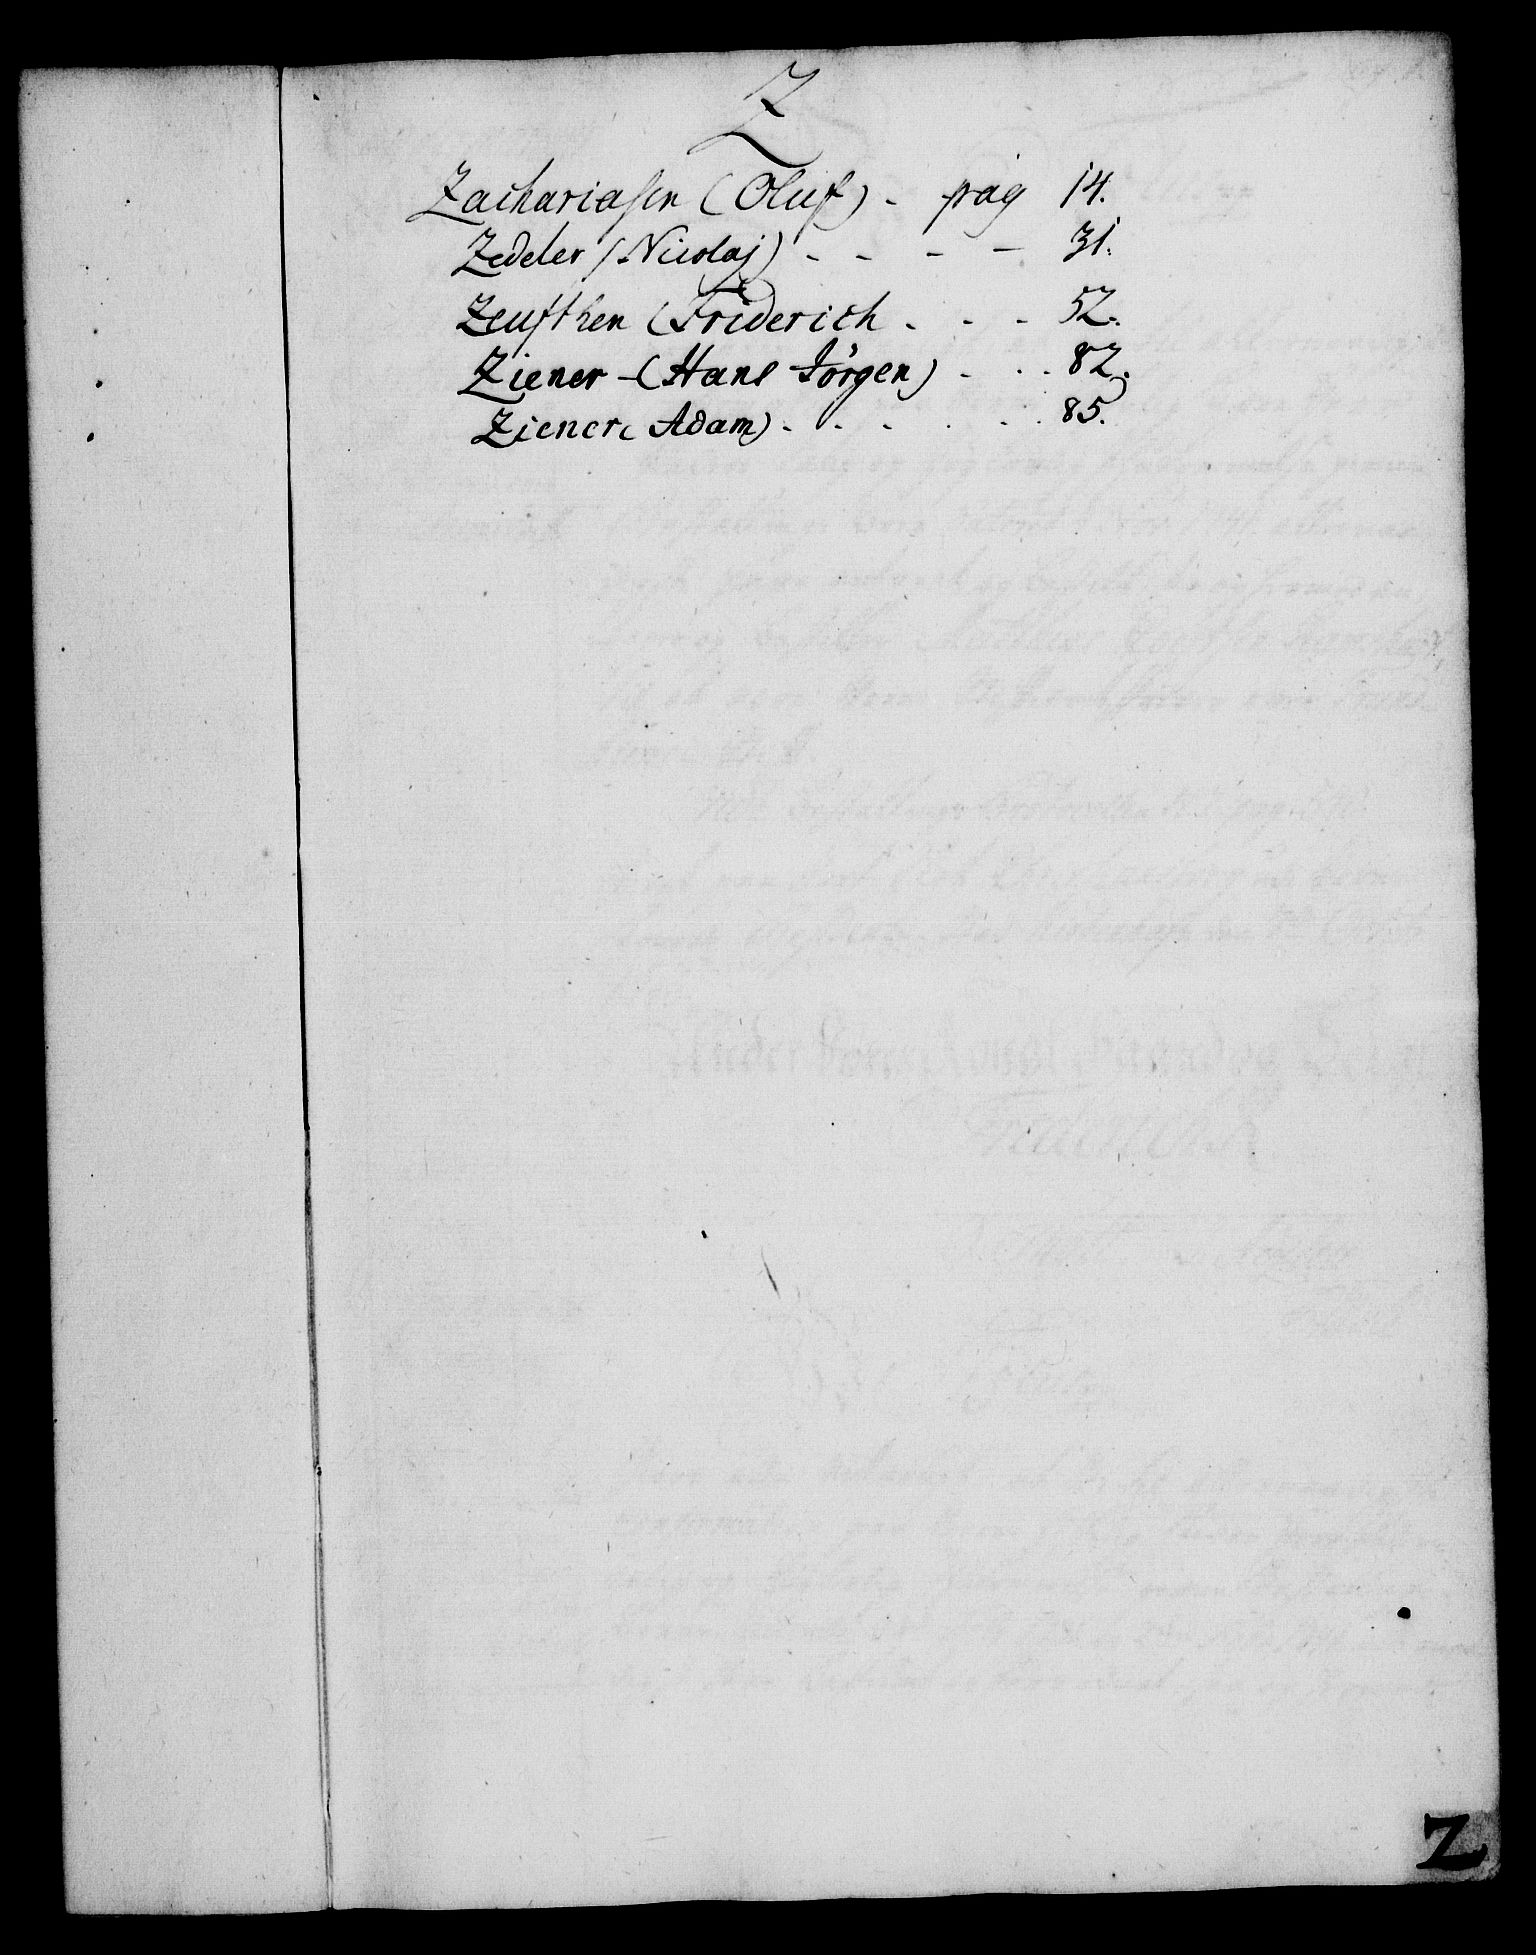 Z
Zachariasen (Oluf) - pag 14.
Zedeler (Nicolaj) - - - - 31.
Zeusthen (Friderich - - - 52.
Ziener - (Hans Jörgen) - - - 82.
Ziener (Adam) - - - - - - 85.
Z